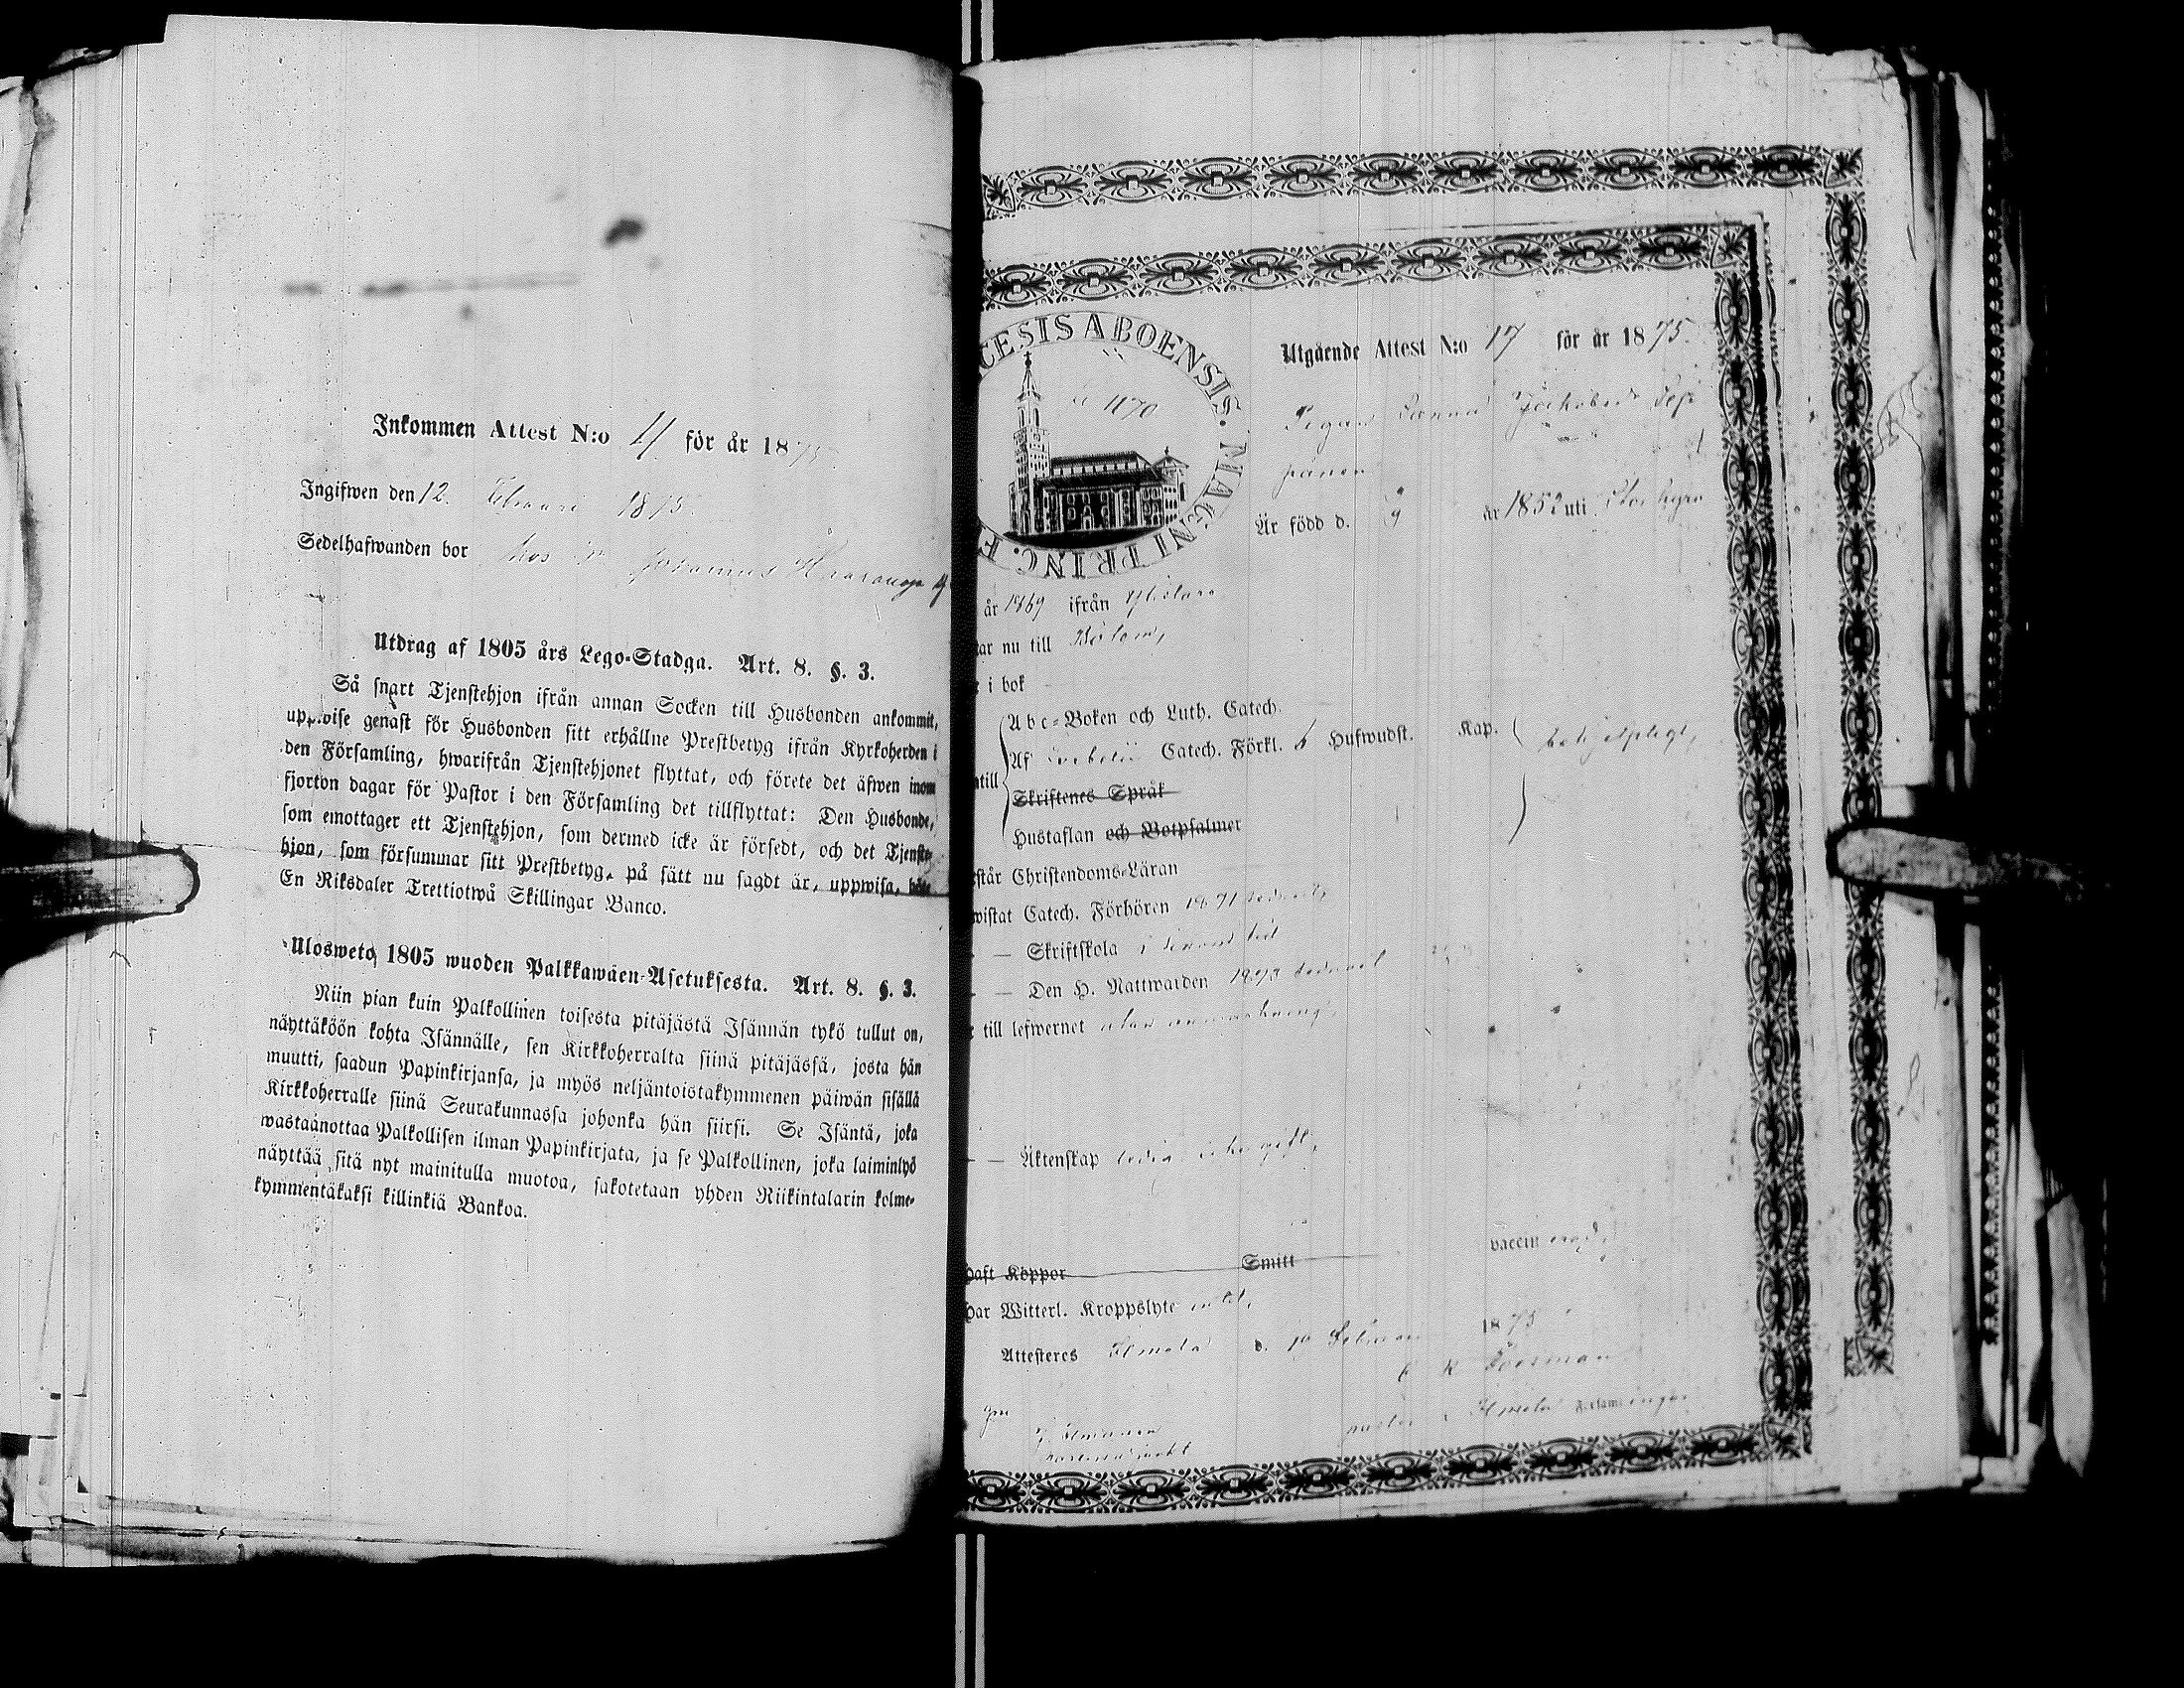 Inkommen Attest N:o 4 för år 1875.
Ingifwen den 12. Februari 1875.
Sedelhafwanden bor hos Johannes
Utdrag af 1805 års Lego-Stadga. Art. 8. §. 3.
Så snart Tjenstehjon ifrån annan Socken till Husbonden ankommit,
uppwise genast för Husbonden sitt erhållne Prestbetyg ifrån Kyrkoherden i
den Församling, hwarifrån Tjenstehjonet flyttat, och förete det äfwen inom
fjorton dagar för Pastor i den Församling det tillflyttat: Den Husbonde,
som emottager ett Tjenstehjon, som dermed icke är försedt, och det Tjenste-
hjon, som försummar sitt Prestbetyg, på sätt nu sagdt är, uppwisa, böte
En Riksdaler Trettiotwå Skillingar Banco.
Ulosweto 1805 wuoden Palkkawäen-Asetuksesta. Art. 8. §. 3.
Niin pian kuin Palkollinen toisesta pitäjästä Isännän tykö tullut on,
näyttäköön kohta Isännälle, sen Kirkkoherralta siinä pitäjässä, josta hän
muutti, saadun Papinkirjansa, ja myös neljäntoistakymmenen päiwän sisällä
Kirkkoherralle siinä Seurakunnassa johonka hän siirsi. Se Isäntä, joka
wastaanottaa Palkollisen ilman Papinkirjata, ja se Palkollinen, joka laiminlyö
näyttää sitä nyt mainitulla muotoa, sakotetaan yhden Riikintalarin kolme-
kymmentäkaksi killinkiä Bankoa.
CESIS ABOENSIS. MAGNI PRINC. F
1170
Utgående Attest N:o 17 för år 1875.
Pigan Sanna Jakobsdr
Är född d. 9 år 1852 uti Stor Kyro
år 1869 ifrån Ylistaro
ar nu till
i bok
Abc-Boken och Luth. Catech.
Af Svebelii Catech. Förkl. 6 Hufwudst. Kap. behjelpligt,
till
Skriftenes Språk
Hustaflan och Botpsalmer
står Christendoms-Läran
wistat Catech. Förhören 1871 sednast,
— Skriftskola i sinom tid
— Den H. Nattwarden 1873 sednast
till lefwernet utan anmärkning,
— Äktenskap ledig icke gift,
haft Koppor Smitt vaccinerad,
har Witterl. Kroppslyte intet,
Attesteres Ilmola d. 10 Februari 1875
pastor i Ilmola Församlingar